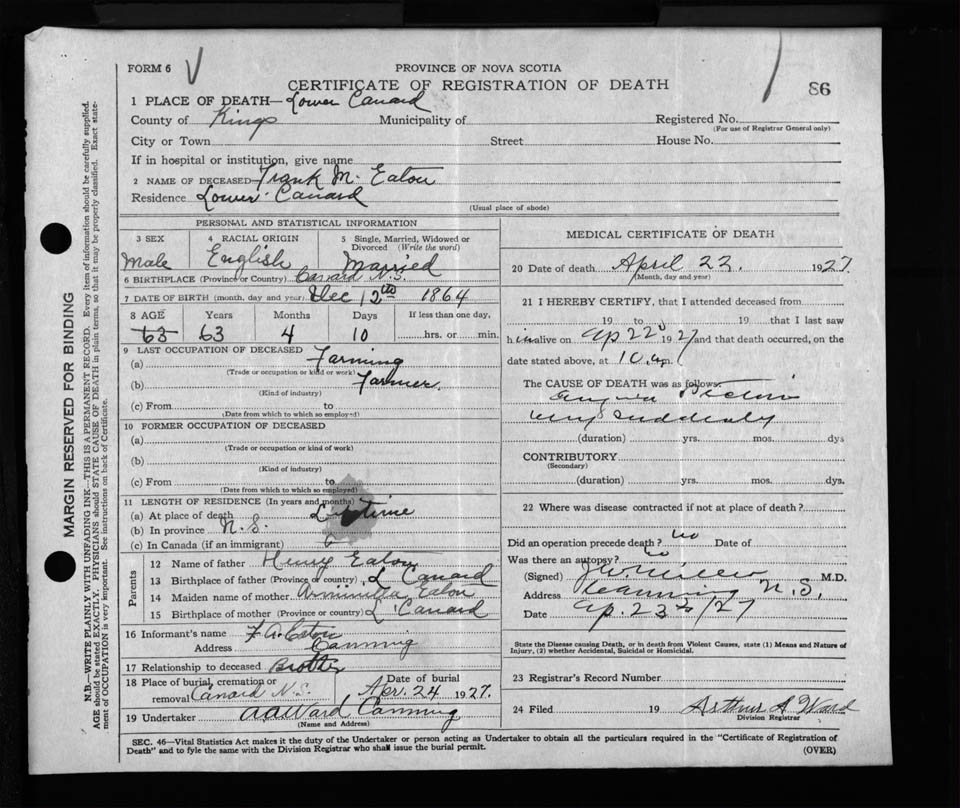 FORM 6 V
PROVINCE OF NOVA SCOTIA
CERTIFICATE OF REGISTRATION OF DEATH
86
1 PLACE OF DEATH—Lower Canard
County of Kings Municipality of Registered No.
(For use of Registrar General only)
City or Town Street House No.
If in hospital or institution, give name
2 NAME OF DECEASED Frank M. Eaton
Residence Lower Canard
(Usual place of abode)
PERSONAL AND STATISTICAL INFORMATION
3 SEX 4 RACIAL ORIGIN 5 Single, Married, Widowed or Divorced (Write the word)
Male English Married
6 BIRTHPLACE (Province or Country) Canard N.S.
7 DATE OF BIRTH (month, day and year) Dec 12th 1864
8 AGE Years Months Days If less than one day,
63 63 4 10 hrs. or min.
9 LAST OCCUPATION OF DECEASED
(a) Farming
(Trade or occupation or kind or work)
(b) Farmer.
(Kind of industry)
(c) From to
(Date from which to which so employed)
10 FORMER OCCUPATION OF DECEASED
(a)
(Trade or occupation or kind of work)
(b)
(Kind of industry)
(c) From to
(Date from which to which so employed)
11 LENGTH OF RESIDENCE (In years and months)
(a) At place of death Lifetime
(b) In province N.S.
(c) In Canada (if an immigrant)
Parents
12 Name of father Henry Eaton
13 Birthplace of father (Province or country) L Canard
14 Maiden name of mother Armimilla Eaton
15 Birthplace of mother (Province or country) L. Canard
16 Informant's name F. A. Eaton
Address Canning
17 Relationship to deceased Brother
18 Place of burial, cremation or removal Canard N.S. Date of burial Apr. 24 1927.
19 Undertaker A A Ward Canning
(Name and Address)
MEDICAL CERTIFICATE OF DEATH
20 Date of death April 22. 1927
(Month, day and year)
21 I HEREBY CERTIFY, that I attended deceased from
19 to 19 that I last saw
him alive on Ap 22 1927 and that death occurred, on the
date stated above, at 10. a.m.
The CAUSE OF DEATH was as follows:
Angina Pectoris
very suddenly
(duration) yrs. mos. dys
CONTRIBUTORY
(Secondary)
(duration) yrs. mos. dys.
22 Where was disease contracted if not at place of death?
Did an operation precede death? no Date of
Was there an autopsy? no
(Signed) M.D.
Address Canning N.S.
Date Ap. 23 /27
State the Disease causing Death, or in death from Violent Causes, state (1) Means and Nature of
Injury, (2) whether Accidental, Suicidal or Homicidal.
23 Registrar's Record Number
24 Filed 19 Arthur A Ward
Division Registrar
SEC. 46—Vital Statistics Act makes it the duty of the Undertaker or person acting as Undertaker to obtain all the particulars required in the "Certificate of Registration of
Death" and to fyle the same with the Division Registrar who shall issue the burial permit.
(OVER)
MARGIN RESERVED FOR BINDING
N.B.—WRITE PLAINLY WITH UNFADING INK—THIS IS A PERMANENT RECORD. Every item of information should be carefully supplied.
AGE should be stated EXACTLY. PHYSICIANS should STATE CAUSE OF DEATH in plain terms, so that it may be properly classified. Exact state-
ment of OCCUPATION is very important. See instructions on back of Certificate.